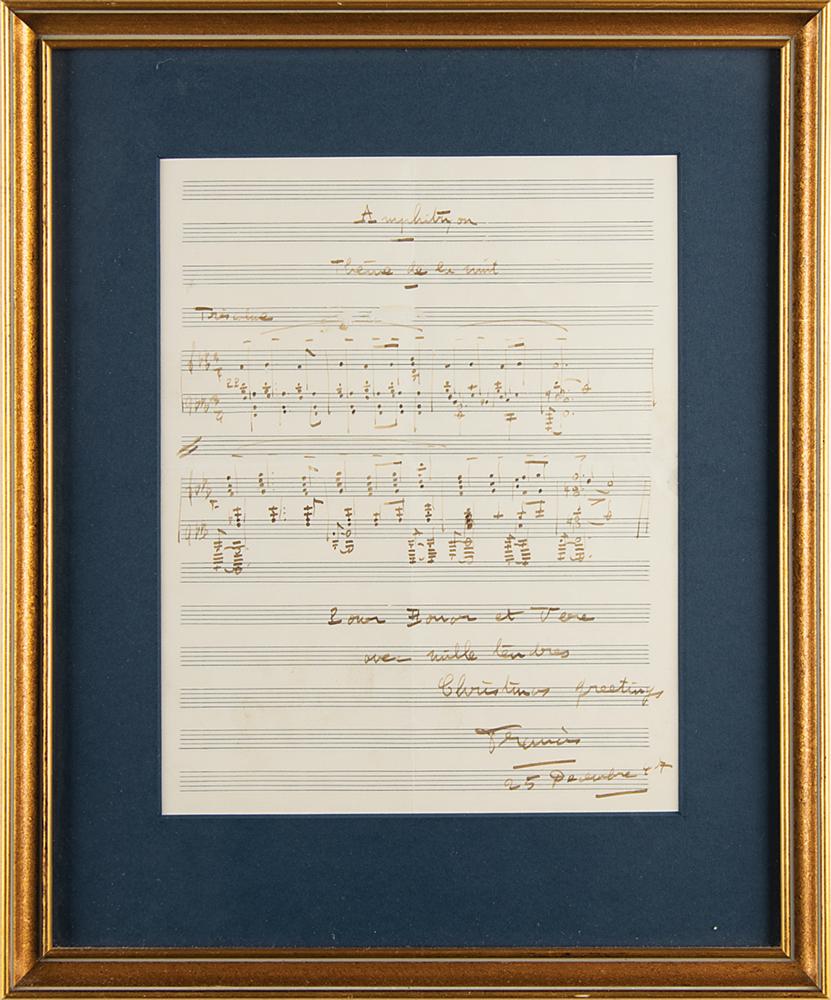 Amphitryon
Thème de la nuit
Très calme
Pour et
avec mille tendres
Christmas greetings
Francis
25 Decembre 47